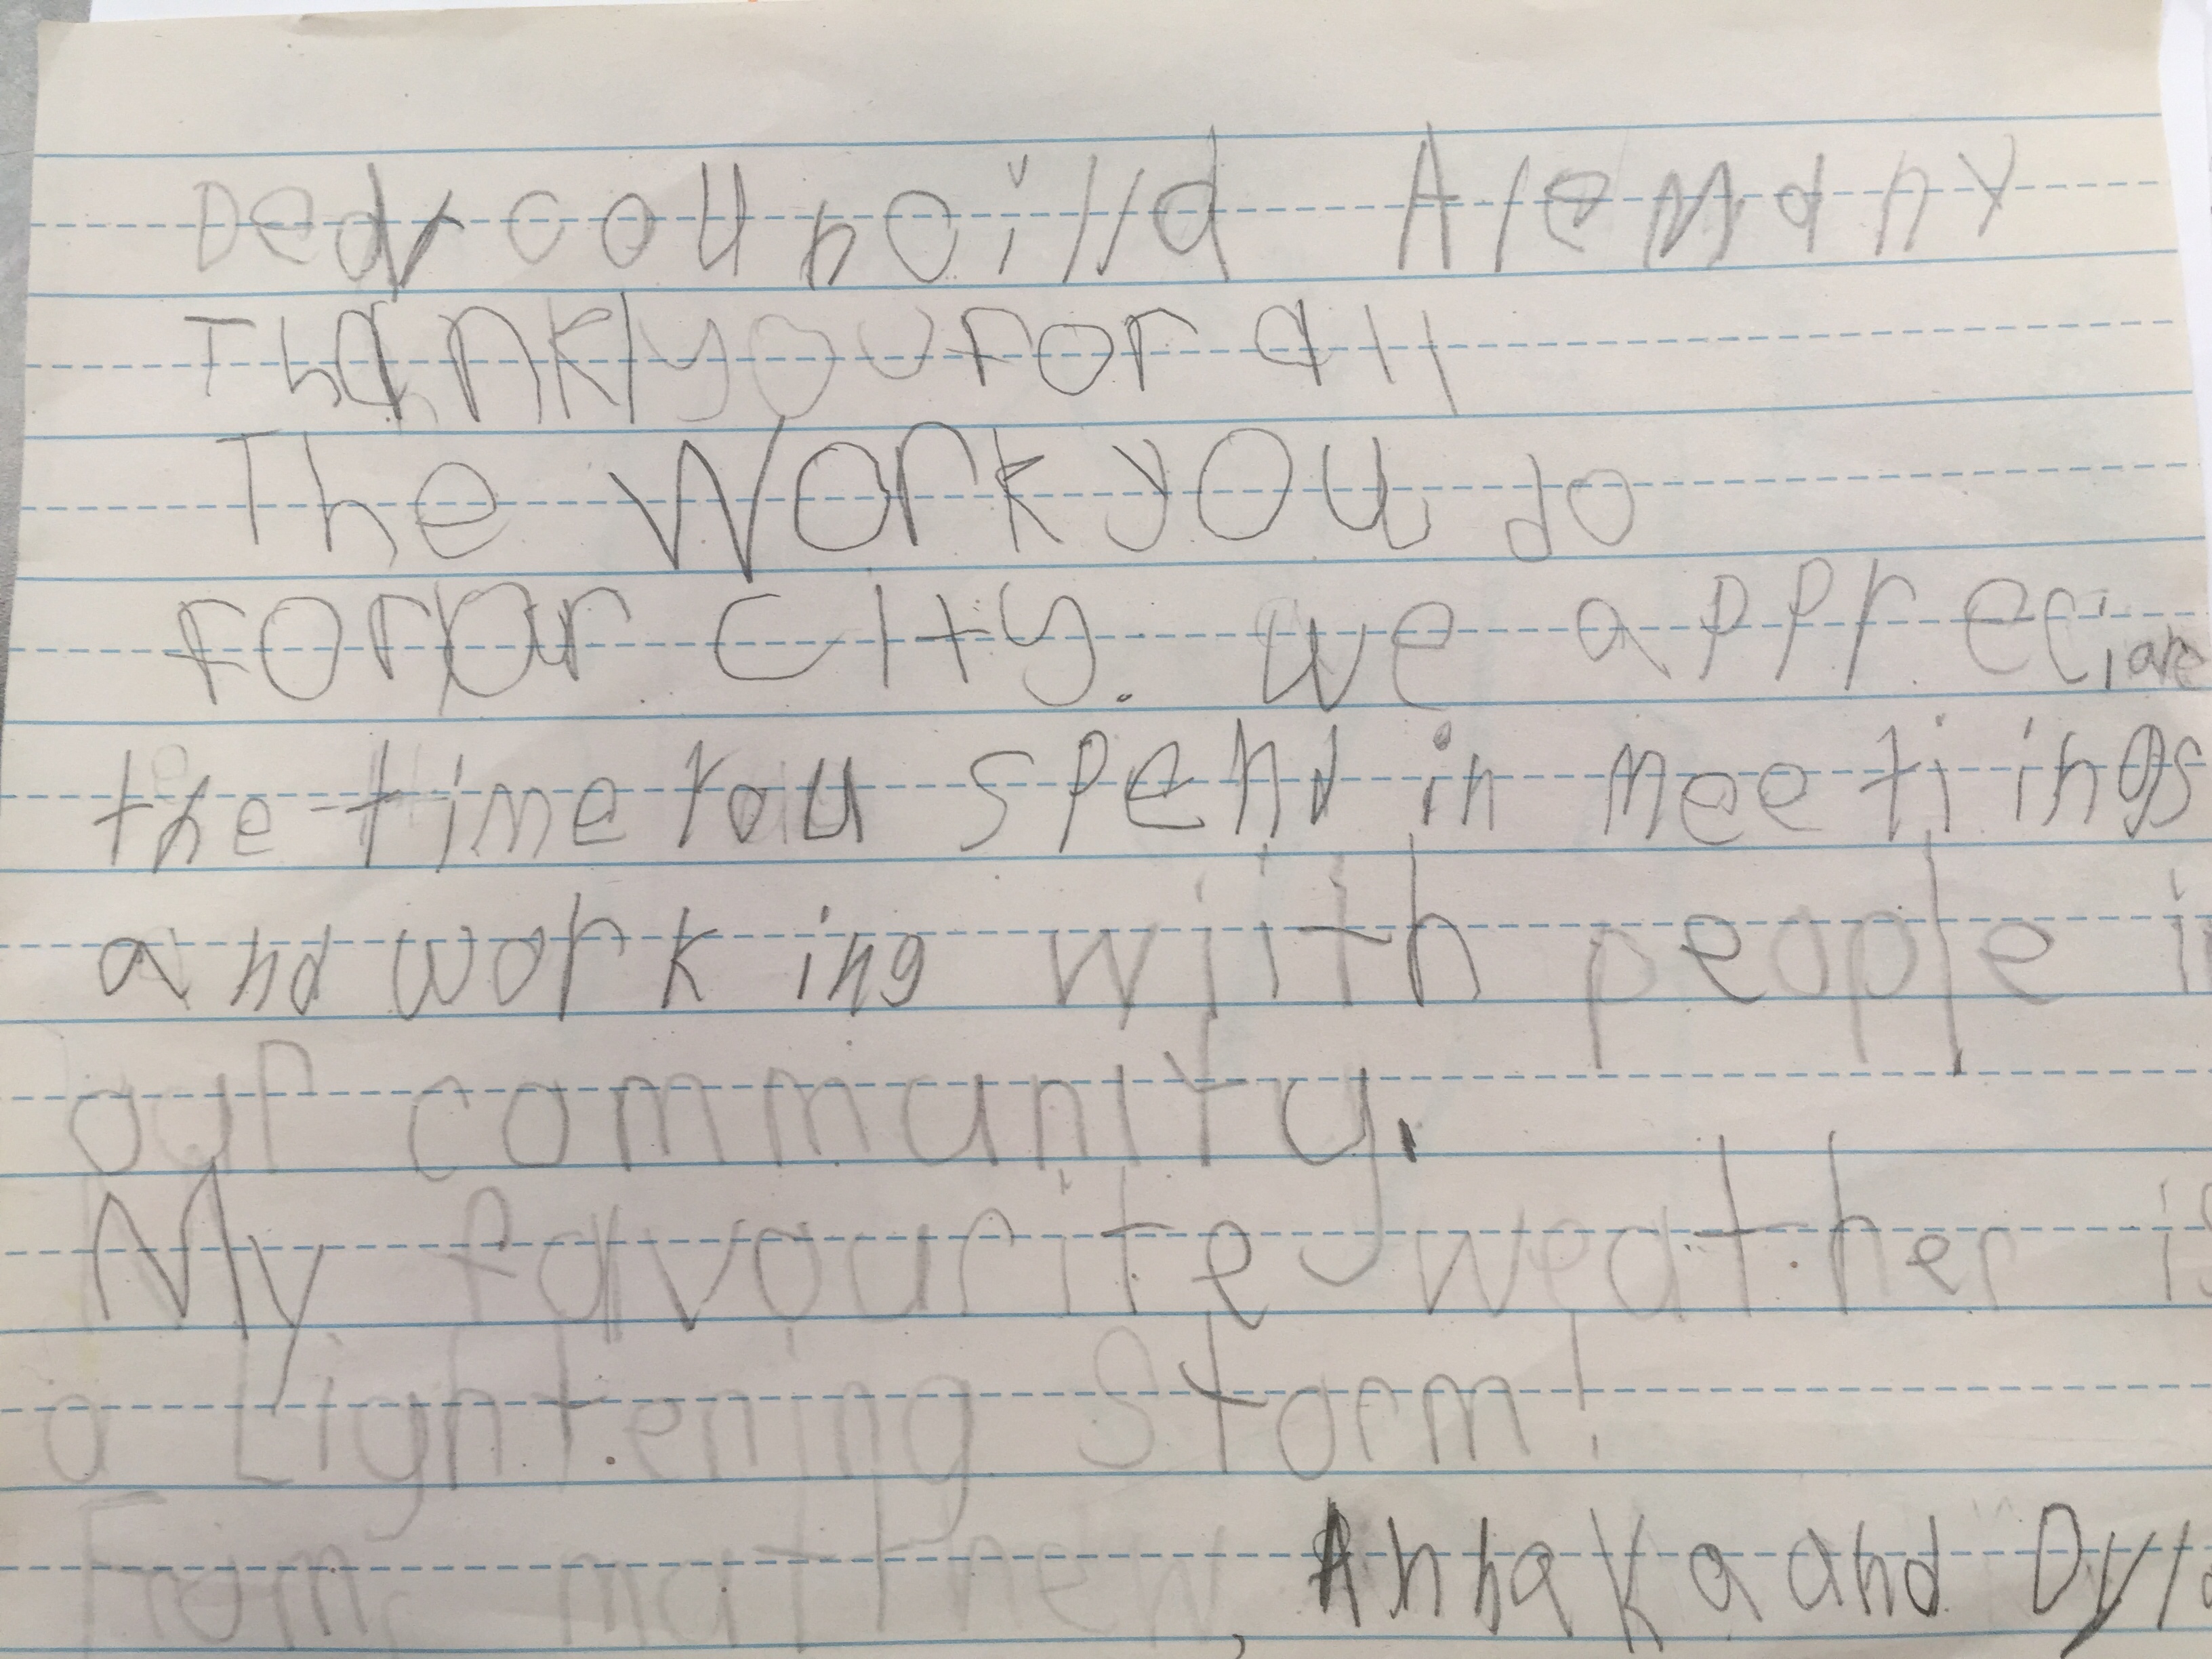 Dear counoilld Alemany
Thank you for all
The Work you do
for our city. we appreciate
the time You spend in meetiings
and working wiith people in
our community.
My favourite weather is
a Lightening Storm!
From matthew, Annaka and Dyla